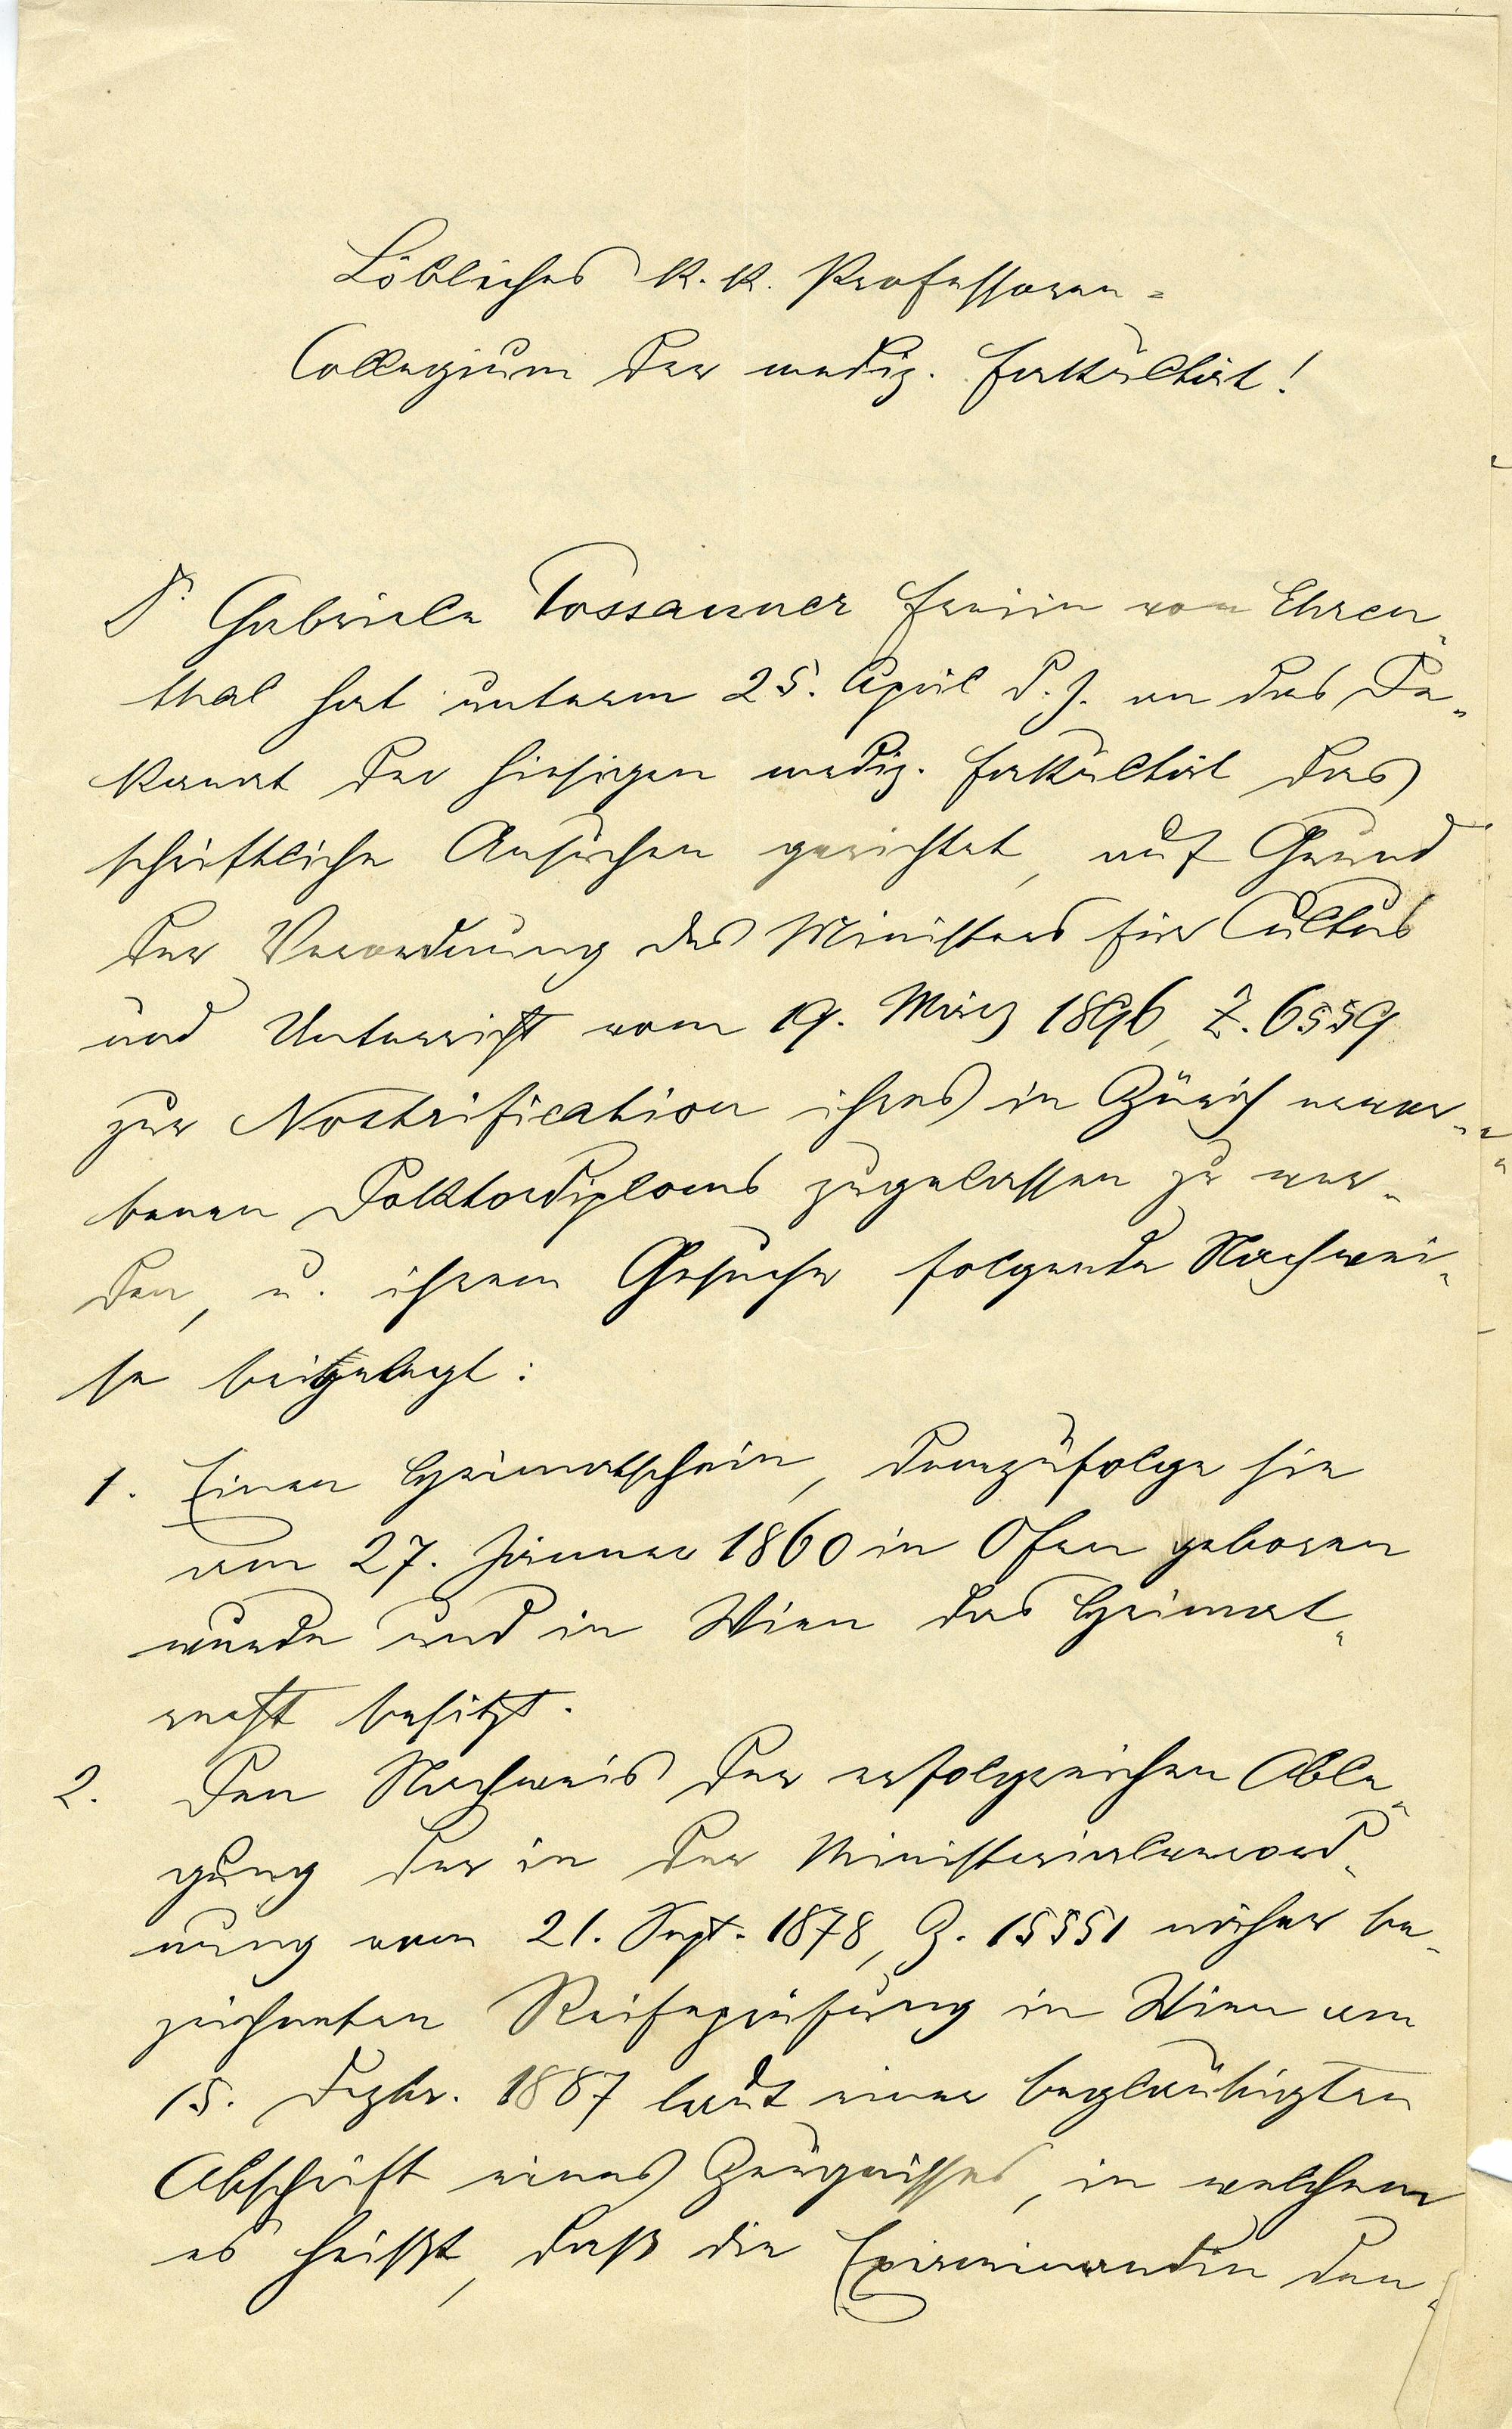 Löbliches k. k. Professoren-
Collegium der mediz. Fakultät!
Dr. Gabriele Possanner Freiin von Ehren-
thal hat unterm 25. April d. J. an das De-
kanat der hiesigen mediz. Fakultät das
schriftliche Ansuchen gerichtet, auf Grund
der Verordnung des Ministers für Cultus
und Unterricht vom 19. März 1896, Z. 6559
zur Nostrification ihres in Zürich erwor-
benen Doktordiploms zugelassen zu wer-
den, u. ihrem Gesuche folgende Nachwei-
se beigelegt:
1. Einen Heimatschein, demzufolge sie
am 27. Jänner 1860 in Ofen geboren
wurde und in Wien das Heimat-
recht besitzt.
2. Den Nachweis der erfolgreichen Able-
gung der in der Ministerialverord-
nung vom 21. Sept. 1878, Z. 15551 näher be-
zeichneten Reifeprüfung in Wien am
15. Dezbr. 1887 laut einer beglaubigten
Abschrift eines Zeugnisses, in welchem
es heißt, daß die Examinandin den-